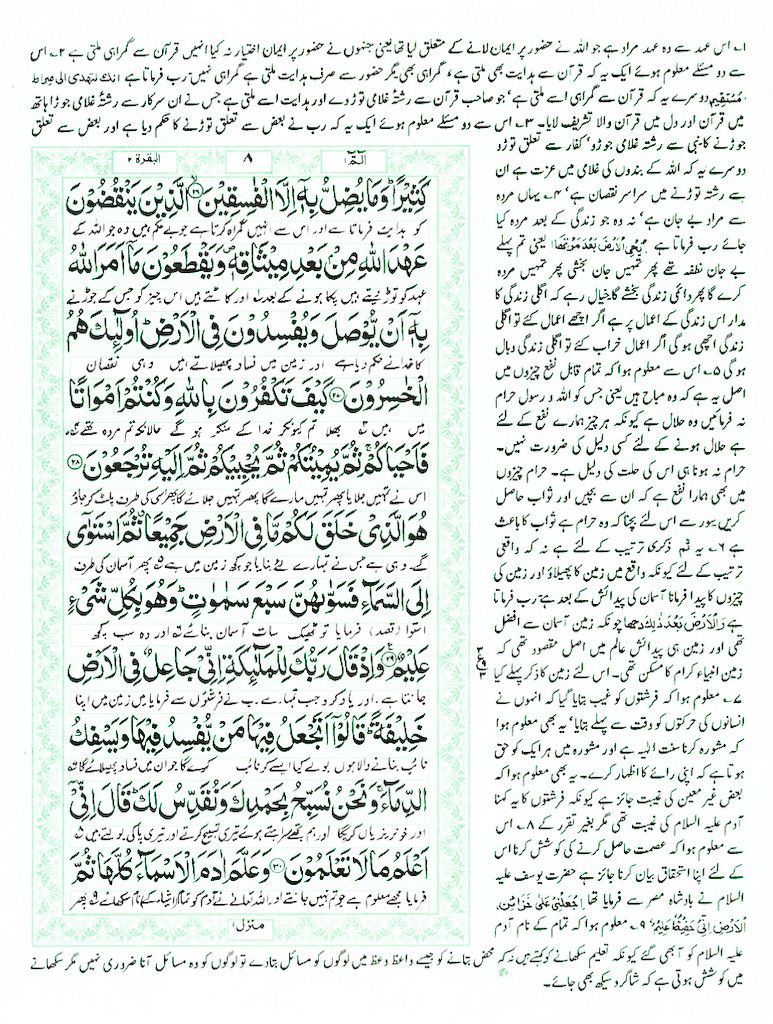 ۱۔ اس عہد سے وہ عہد مراد ہے جو اللہ نے حضور پر ایمان لانے کے متعلق لیا تھا یعنی جنہوں نے حضور پر ایمان اختیار نہ کیا انہیں قرآن سے گمراہی ملتی ہے ۲۔ اس
سے دو مسئلے معلوم ہوئے ایک یہ کہ قرآن سے ہدایت بھی ملتی ہے، گمراہی بھی مگر حضور سے صرف ہدایت ملتی ہے گمراہی نہیں رب فرماتا ہے انک لتھدی الی صراط
مستقیم دوسرے یہ کہ قرآن سے گمراہی اسے ملتی ہے' جو صاحب قرآن سے رشتۂ غلامی توڑ دے اور ہدایت اسے ملتی ہے جس نے ان سرکار سے رشتۂ غلامی جوڑا ہاتھ
میں قرآن اور دل میں قرآن والا تشریف لایا۔ ۳۔ اس سے دو مسئلے معلوم ہوئے ایک یہ کہ رب نے بعض سے تعلق توڑنے کا حکم دیا ہے اور بعض سے تعلق
جوڑنے کا نبی سے رشتہ غلامی جوڑو' کفار سے تعلق توڑو
دوسرے یہ کہ اللہ کے بندوں کی غلامی میں عزت ہے ان
سے رشتہ توڑنے میں سراسر نقصان ہے' ۴۔ یہاں مردہ
سے مراد بے جان ہے' نہ وہ جو زندگی کے بعد مردہ کیا
جائے رب فرماتا ہے یُحْیِ الْاَرْضَ بَعْدَ مَوْتِهَا یعنی تم پہلے
بے جان نطفہ تھے پھر تمہیں جان بخشی پھر تمہیں مردہ
کرے گا پھر دائمی زندگی بخشے گا خیال رہے کہ اگلی زندگی کا
مدار اس زندگی کے اعمال پر ہے اگر اچھے اعمال کئے تو اگلی
زندگی اچھی ہوگی اگر اعمال خراب کئے تو اگلی زندگی وبال
ہوگی ۵۔ اس سے معلوم ہوا کہ تمام قابل نفع چیزوں میں
اصل یہ ہے کہ وہ مباح ہیں یعنی جس کو اللہ و رسول حرام
نہ فرمائیں وہ حلال ہے کیونکہ ہر چیز ہمارے نفع کے لئے
ہے حلال ہونے کے لئے کسی دلیل کی ضرورت نہیں۔
حرام نہ ہونا ہی اس کی حلت کی دلیل ہے۔ حرام چیزوں
میں بھی ہمارا نفع ہے کہ ان سے بچیں اور ثواب حاصل
کریں سور سے اس لئے بچنا کہ وہ حرام ہے ثواب کا باعث
ہے ۶۔ یہ ثم ذکری ترتیب کے لئے ہے نہ کہ واقعی
ترتیب کے لئے کیونکہ واقع میں زمین کا پھیلاؤ اور زمین کی
چیزوں کا پیدا فرمانا آسمان کی پیدائش کے بعد ہے رب فرماتا
ہے وَالْاَرْضَ بَعْدَ ذٰلِكَ دَحٰهَا چونکہ زمین آسمان سے افضل
تھی اور زمین ہی پیدائش عالم میں اصل مقصود تھی کہ
زمین انبیاء کرام کا مسکن تھی۔ اس لئے زمین کا ذکر پہلے کیا
۷۔ معلوم ہوا کہ فرشتوں کو غیب بتایا گیا کہ انہوں نے
انسانوں کی حرکتوں کو وقت سے پہلے بتایا' یہ بھی معلوم ہوا
کہ مشورہ کرنا سنت الٰہیہ ہے اور مشورہ میں ہر ایک کو حق
ہوتا ہے کہ اپنی رائے کا اظہار کرے۔ یہ بھی معلوم ہوا کہ
بعض غیر معین کی غیبت جائز ہے کیونکہ فرشتوں کا یہ کہنا
آدم علیہ السلام کی غیبت تھی مگر بغیر تقرر کے ۸۔ اس
سے معلوم ہوا کہ عصمت حاصل کرنے کی کوشش کرنا اس
کے لئے اپنا استحقاق بیان کرنا جائز ہے حضرت یوسف علیہ
السلام نے بادشاہ مصر سے فرمایا تھا اِجْعَلْنِیْ عَلٰی خَزَائِنِ
الْاَرْضِ اِنِّیْ حَفِیْظٌ عَلِیْمٌ' ۹۔ معلوم ہوا کہ تمام کے نام آدم
علیہ السلام کو آ بھی گئے کیونکہ تعلیم سکھانے کو کہتے ہیں نہ کہ محض بتانے کو جیسے واعظ وعظ میں لوگوں کو مسائل بتادے تو لوگوں کو وہ مسائل آنا ضروری نہیں مگر سکھانے
میں کوشش ہوتی ہے کہ شاگرد سیکھ بھی جائے۔
البقرة ۲
۸
الٓمّٓ ۱
كَثِيْرًا ؕ وَمَا يُضِلُّ بِهٖۤ اِلَّا الْفٰسِقِيْنَ ﴿۲۶﴾ الَّذِيْنَ يَنْقُضُوْنَ
کو ہدایت فرماتا ہے اور اس سے انہیں گمراہ کرتا ہے جو بے حکم ہیں وہ جو اللہ کے
عَهْدَ اللّٰهِ مِنْۢ بَعْدِ مِيْثَاقِهٖ ۪ وَيَقْطَعُوْنَ مَاۤ اَمَرَ اللّٰهُ
عہد کو توڑ دیتے ہیں پکا ہونے کے بعد اور کاٹتے ہیں اس چیز کو جس کے جوڑنے
بِهٖۤ اَنْ يُّوْصَلَ وَيُفْسِدُوْنَ فِى الْاَرْضِ ؕ اُولٰٓئِكَ هُمُ
کا خدا نے حکم دیا ہے اور زمین میں فساد پھیلاتے ہیں وہی نقصان
الْخٰسِرُوْنَ ﴿۲۷﴾ كَيْفَ تَكْفُرُوْنَ بِاللّٰهِ وَكُنْتُمْ اَمْوَاتًا
میں ہیں بھلا تم کیونکر خدا کے منکر ہوگے حالانکہ تم مردہ تھے
فَاَحْيَاكُمْ ۚ ثُمَّ يُمِيْتُكُمْ ثُمَّ يُحْيِيْكُمْ ثُمَّ اِلَيْهِ تُرْجَعُوْنَ ﴿۲۸﴾
اس نے تمہیں جلایا پھر تمہیں مارے گا پھر تمہیں جلائے گا پھر اسی کی طرف پلٹ کر جاؤ
هُوَ الَّذِىْ خَلَقَ لَكُمْ مَّا فِى الْاَرْضِ جَمِيْعًا ۗ ثُمَّ اسْتَوٰۤى
گے۔ وہی ہے جس نے تمہارے لئے بنایا جو کچھ زمین میں ہے پھر آسمان کی طرف
اِلَى السَّمَآءِ فَسَوّٰىهُنَّ سَبْعَ سَمٰوٰتٍ ؕ وَهُوَ بِكُلِّ شَىْءٍ
استوا (قصد) فرمایا تو ٹھیک سات آسمان بنائے اور وہ سب کچھ
عَلِيْمٌ ﴿۲۹﴾ وَاِذْ قَالَ رَبُّكَ لِلْمَلٰٓئِكَةِ اِنِّىْ جَاعِلٌ فِى الْاَرْضِ
جانتا ہے۔ اور یاد کرو جب تمہارے رب نے فرشتوں سے فرمایا میں زمین میں اپنا
خَلِيْفَةً ؕ قَالُوْۤا اَتَجْعَلُ فِيْهَا مَنْ يُّفْسِدُ فِيْهَا وَيَسْفِكُ
نائب بنانے والا ہوں بولے کیا ایسے کو نائب کرے گا جو ان میں فساد پھیلائے گا
الدِّمَآءَ ۚ وَنَحْنُ نُسَبِّحُ بِحَمْدِكَ وَنُقَدِّسُ لَكَ ؕ قَالَ اِنِّىْۤ
اور خونریزیاں کریگا اور ہم تجھے سراہتے ہوئے تیری تسبیح کرتے اور تیری پاکی بولتے ہیں
اَعْلَمُ مَا لَا تَعْلَمُوْنَ ﴿۳۰﴾ وَعَلَّمَ اٰدَمَ الْاَسْمَآءَ كُلَّهَا ثُمَّ
فرمایا مجھے معلوم ہے جو تم نہیں جانتے اور اللہ تعالیٰ نے آدم کو تمام اشیاء کے نام سکھائے پھر
منزل ۱